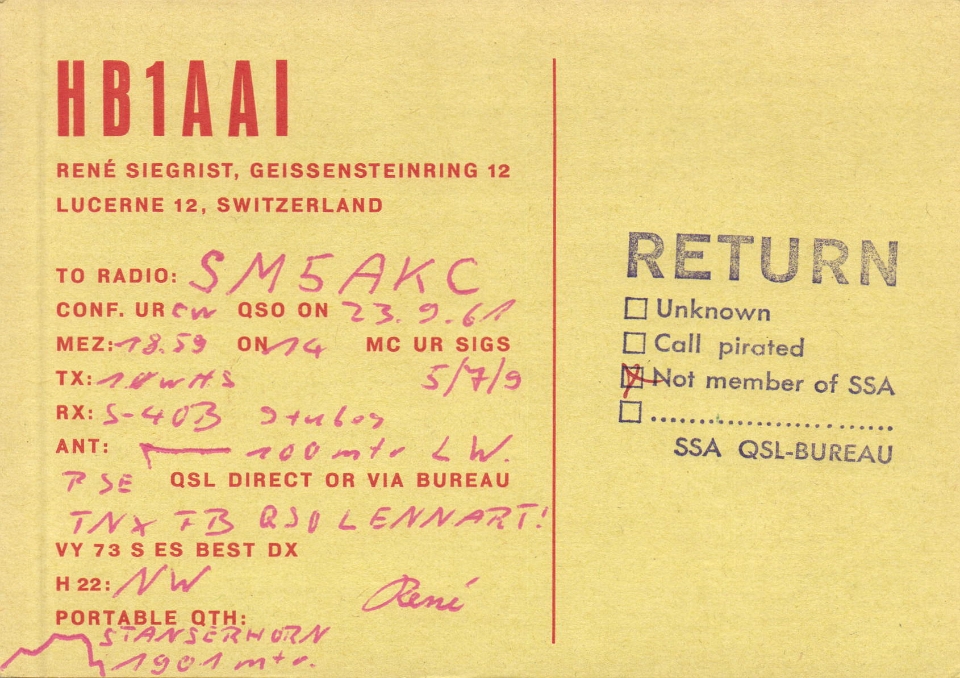 HB1AAI
RENÉ SIEGRIST, GEISSENSTEINRING 12
LUCERNE 12, SWITZERLAND
TO RADIO: SM5AKC
CONF. UR CW QSO ON 23.9.61
MEZ: 18.59 ON 14 MC UR SIGS
TX: 10w HS 5/7/9
RX: S-40B 9tubes
ANT: 100 mtr LW.
PSE QSL DIRECT OR VIA BUREAU
TNX FB QSO LENNART!
VY 73 S ES BEST DX
H 22: NW
René
PORTABLE QTH:
STANSERHORN
1901 mtr.
RETURN
Unknown
Call pirated
Not member of SSA
SSA QSL-BUREAU